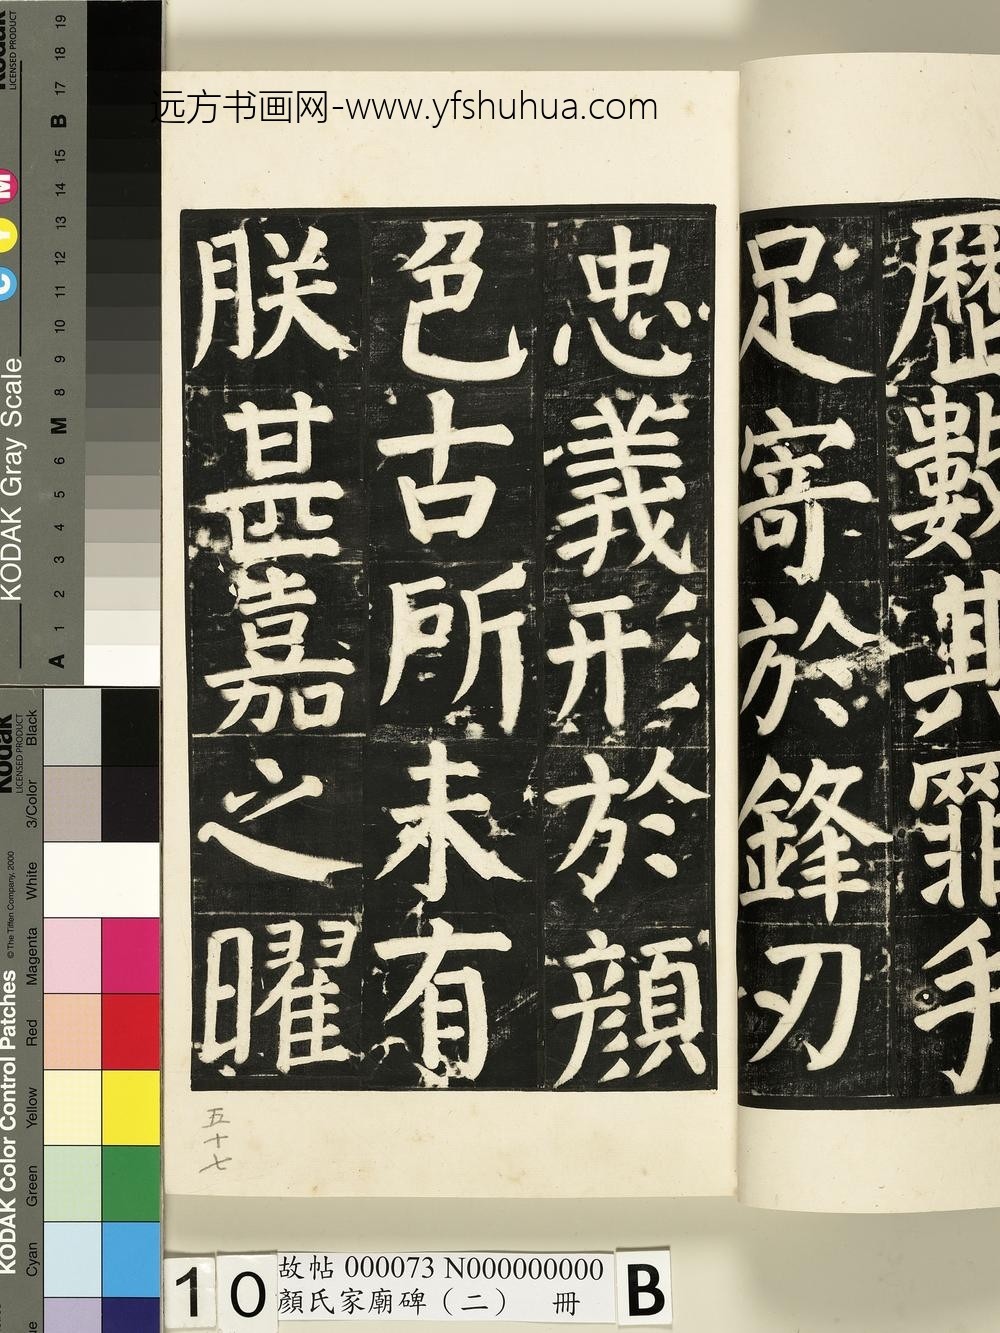 远方书画网-www.yfshuhua.com
歷數其罪手
足寄於鋒刃
忠義形於顏
色古所未有
朕甚嘉之曜
五十七
10
故帖 000073 N000000000
顏氏家廟碑（二） 冊
B
KODAK Gray Scale
Kodak
LICENSED PRODUCT
C Y M
A 1 2 3 4 5 6 M 8 9 10 11 12 13 14 15 B 17 18 19
KODAK Color Control Patches
© The Tiffen Company, 2000
Kodak
LICENSED PRODUCT
Cyan Green Yellow Red Magenta White 3/Color Black